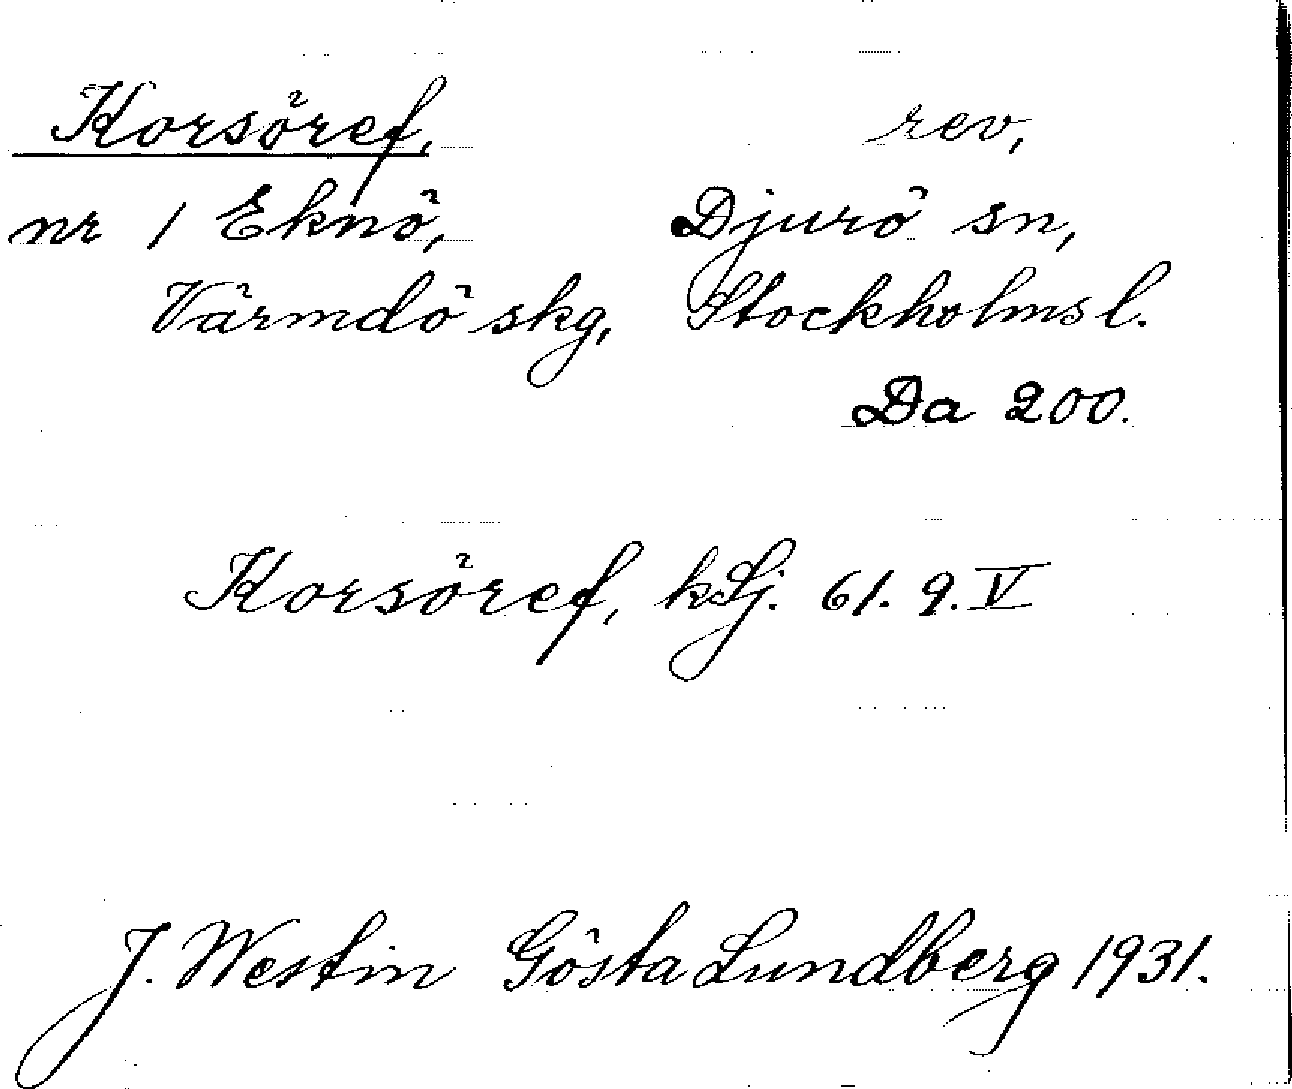 Korsöref, rev,
nr 1 Eknö, Djurö sn,
Värmdö skg, Stockholms l.
Da 200.
Korsöref, kSj. 61. 9. V
J. Westin Gösta Lundberg 1931.